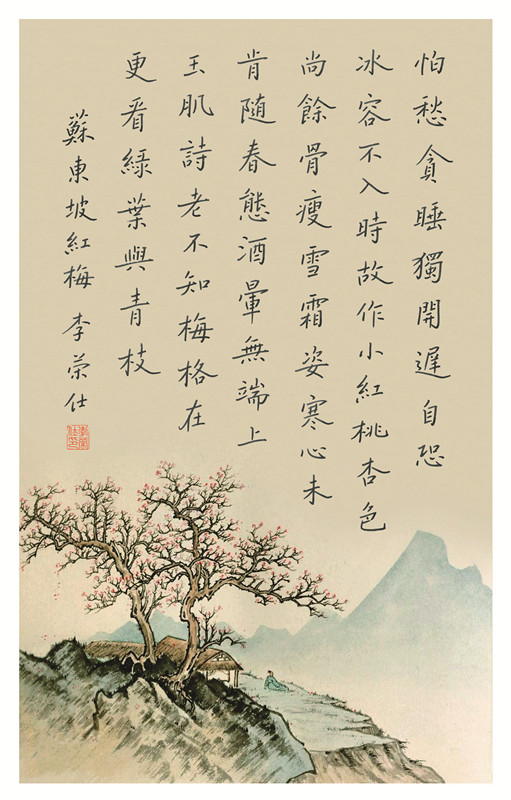 怕愁貪睡獨開遲自恐
冰容不入時故作小紅桃杏色
尚餘骨瘦雪霜姿寒心未
肯随春態酒暈無端上
玉肌詩老不知梅格在
更看綠葉與青枝
蘇東坡紅梅 李榮仕